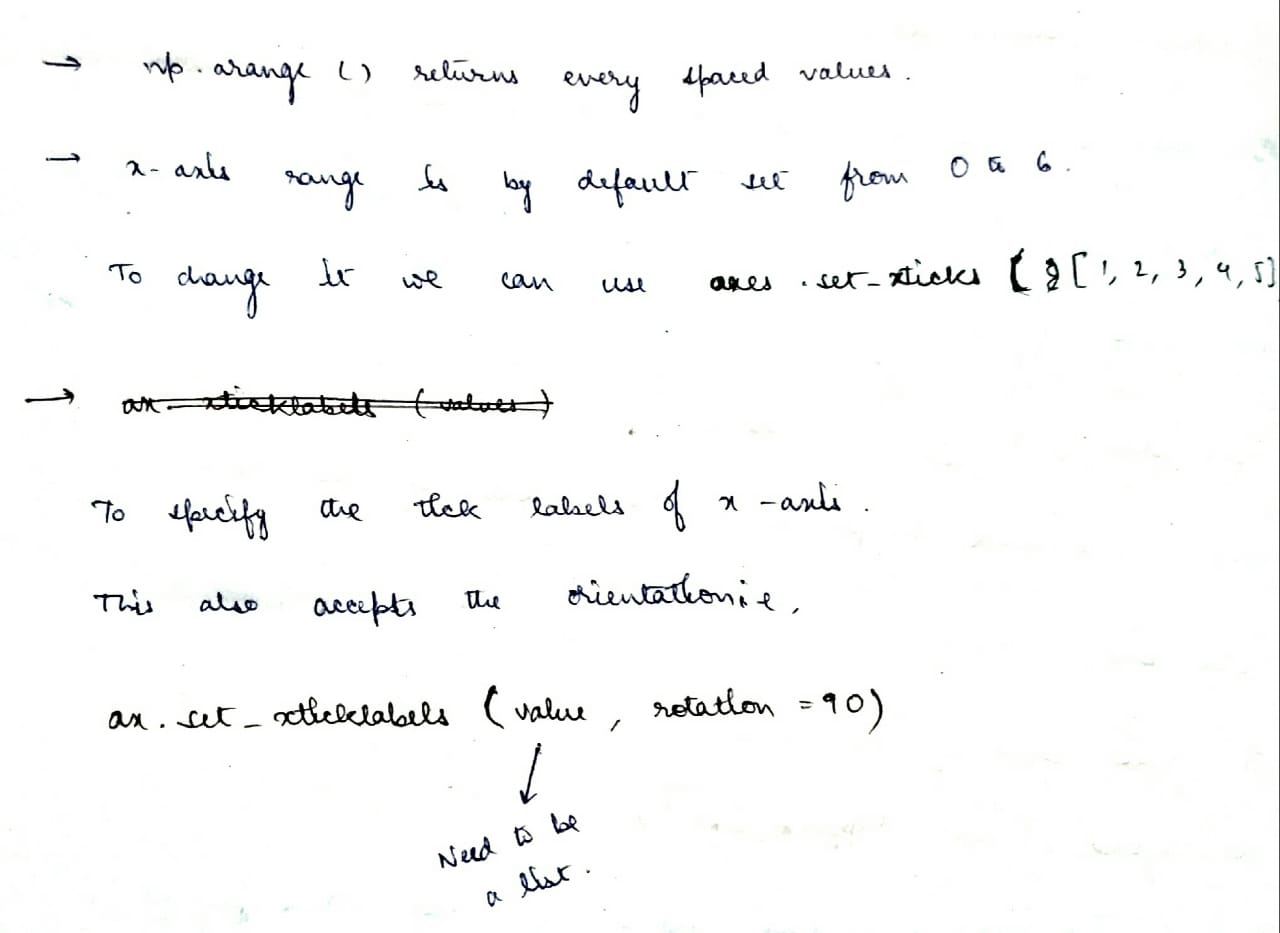 → np.arange () returns every spaced values.
→ x-axis range is by default set from 0 to 6.
To change it we can use axes.set_xticks ( [1, 2, 3, 4, 5]
→ ax. xticklabels (values)
To specify the tick labels of x-axis.
This also accepts the orientation i e,
ax.set_xticklabels (value, rotation = 90)
↓
Need to be
a list.